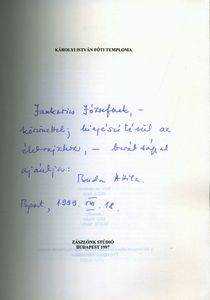 KÁROLYI ISTVÁN FÓTI TEMPLOMA
Jankovics Józsefnek, –
köszönettel; kiegészítésül az
életrajzhoz, – barátsággal
ajánlja:
Buda Attila.
Bpest, 1999. VIII. 18.
ZÁSZLÓNK STÚDIÓ
BUDAPEST 1997